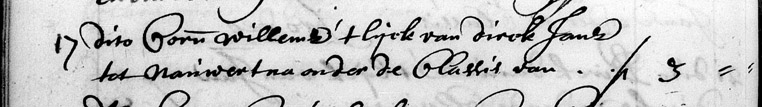 17 dito Corn willemsz t lijck van dirck Jansz
tot Nauwertna onder de Classis van . . f 3 = =